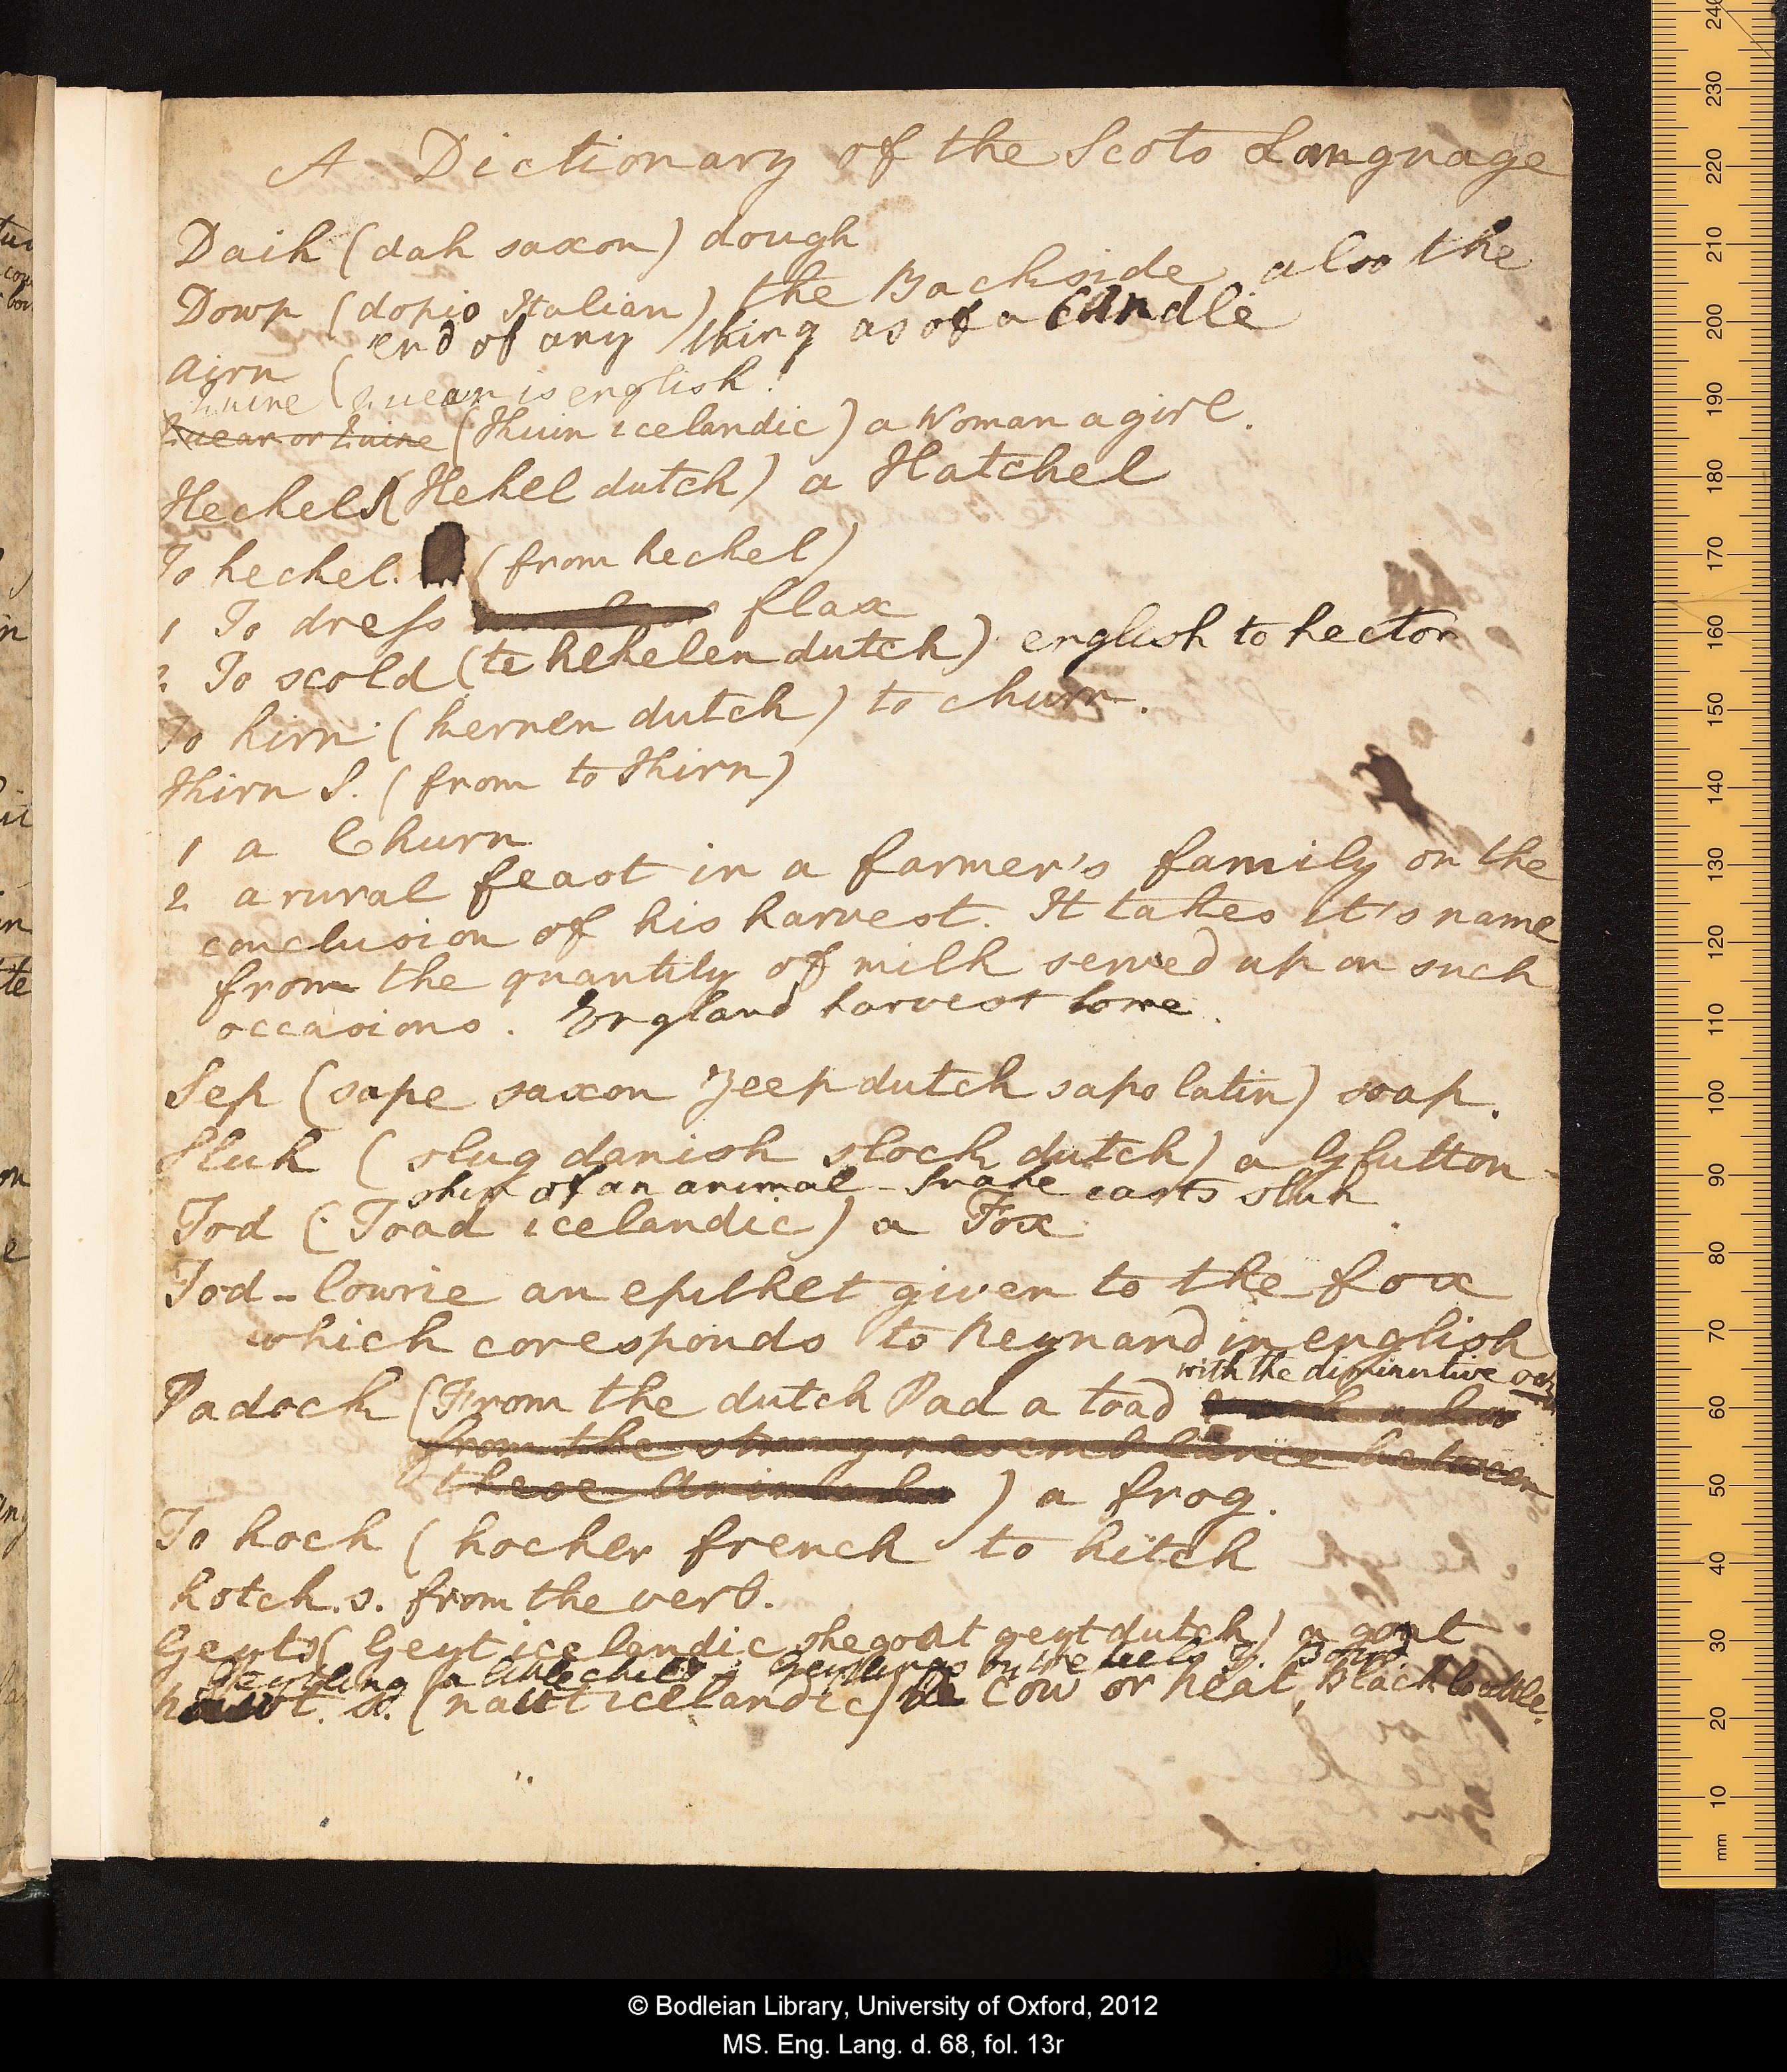 A Dictionary of the Scots Language
Daik (dah saxon) dough
Dowp (dopio Italian) the Backside also the
end of any thing as of a Candle
Airn (
Quine (quean is english.
Quean or Quine (Kuin icelandic) a Woman a girl.
Heckel S (Hekel dutch) a Hatchel
To heckel. (from heckel)
1 To dress flax
2 To scold (te hekelen dutch) english to hector
To kirn (kernen dutch) to churn.
Kirn S. (from to Kirn)
1 a Churn
2 a rural feast in a farmer's family on the
conclusion of his harvest. It takes it's name
from the quantity of milk served up on such
occasions. England harvest home.
Sep (sape saxon Zeep dutch sapo latin) soap.
Sluk (slug danish slock dutch) a Glutton
skin of an animal - Snake casts sluk
Tod (Toad icelandic) a Fox
Tod-lowrie an epithet given to the fox
which coresponds to Reynard in english
with the diminutive ock
Padock (From the dutch Pad a toad
from the strong resemblance between
these ) a frog.
To hoch (hocher french to hitch
hotch. s. from the verb.
Geyt S (Geyt icelandic she goat geyt dutch) a goat
Geytling a little child - Geytlings by the heels
. S. (naut icelandic) a cow or neat, Black Cattle.
240
230
220
210
200
190
180
170
160
150
140
130
120
110
100
90
80
70
60
50
40
30
20
10
mm
© Bodleian Library, University of Oxford, 2012
MS. Eng. Lang. d. 68, fol. 13r